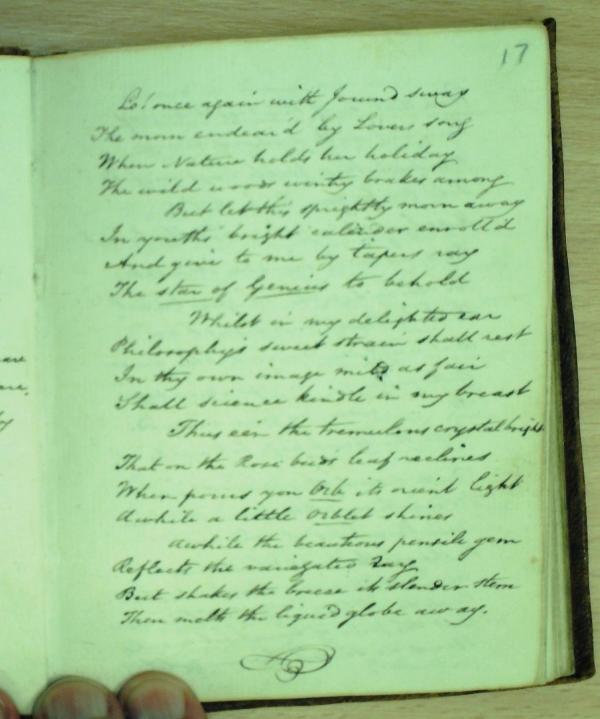 17
Lo! once again with Jocund sway
The morn endear'd by Lovers song
When Nature holds her holiday
The wild woods wintry brakes among
But let this sprightly morn away
In youths bright calender enroll'd
And give to me by tapers ray
The star of Genius to behold
Whilst in my delighted ear
Philosophy's sweet strain shall rest
In thy own image mild as fair
Shall science kindle in my breast
Thus e'en the tremulous crystal bright
That on the Rose bud's leaf reclines
When pours yon Orb its orient light
Awhile a little Orblet shines
Awhile the beauteous pensile gem
Reflects the variegated Ray
But shakes the breeze its slender stem
Then melts the liquid globe away.
are
are,